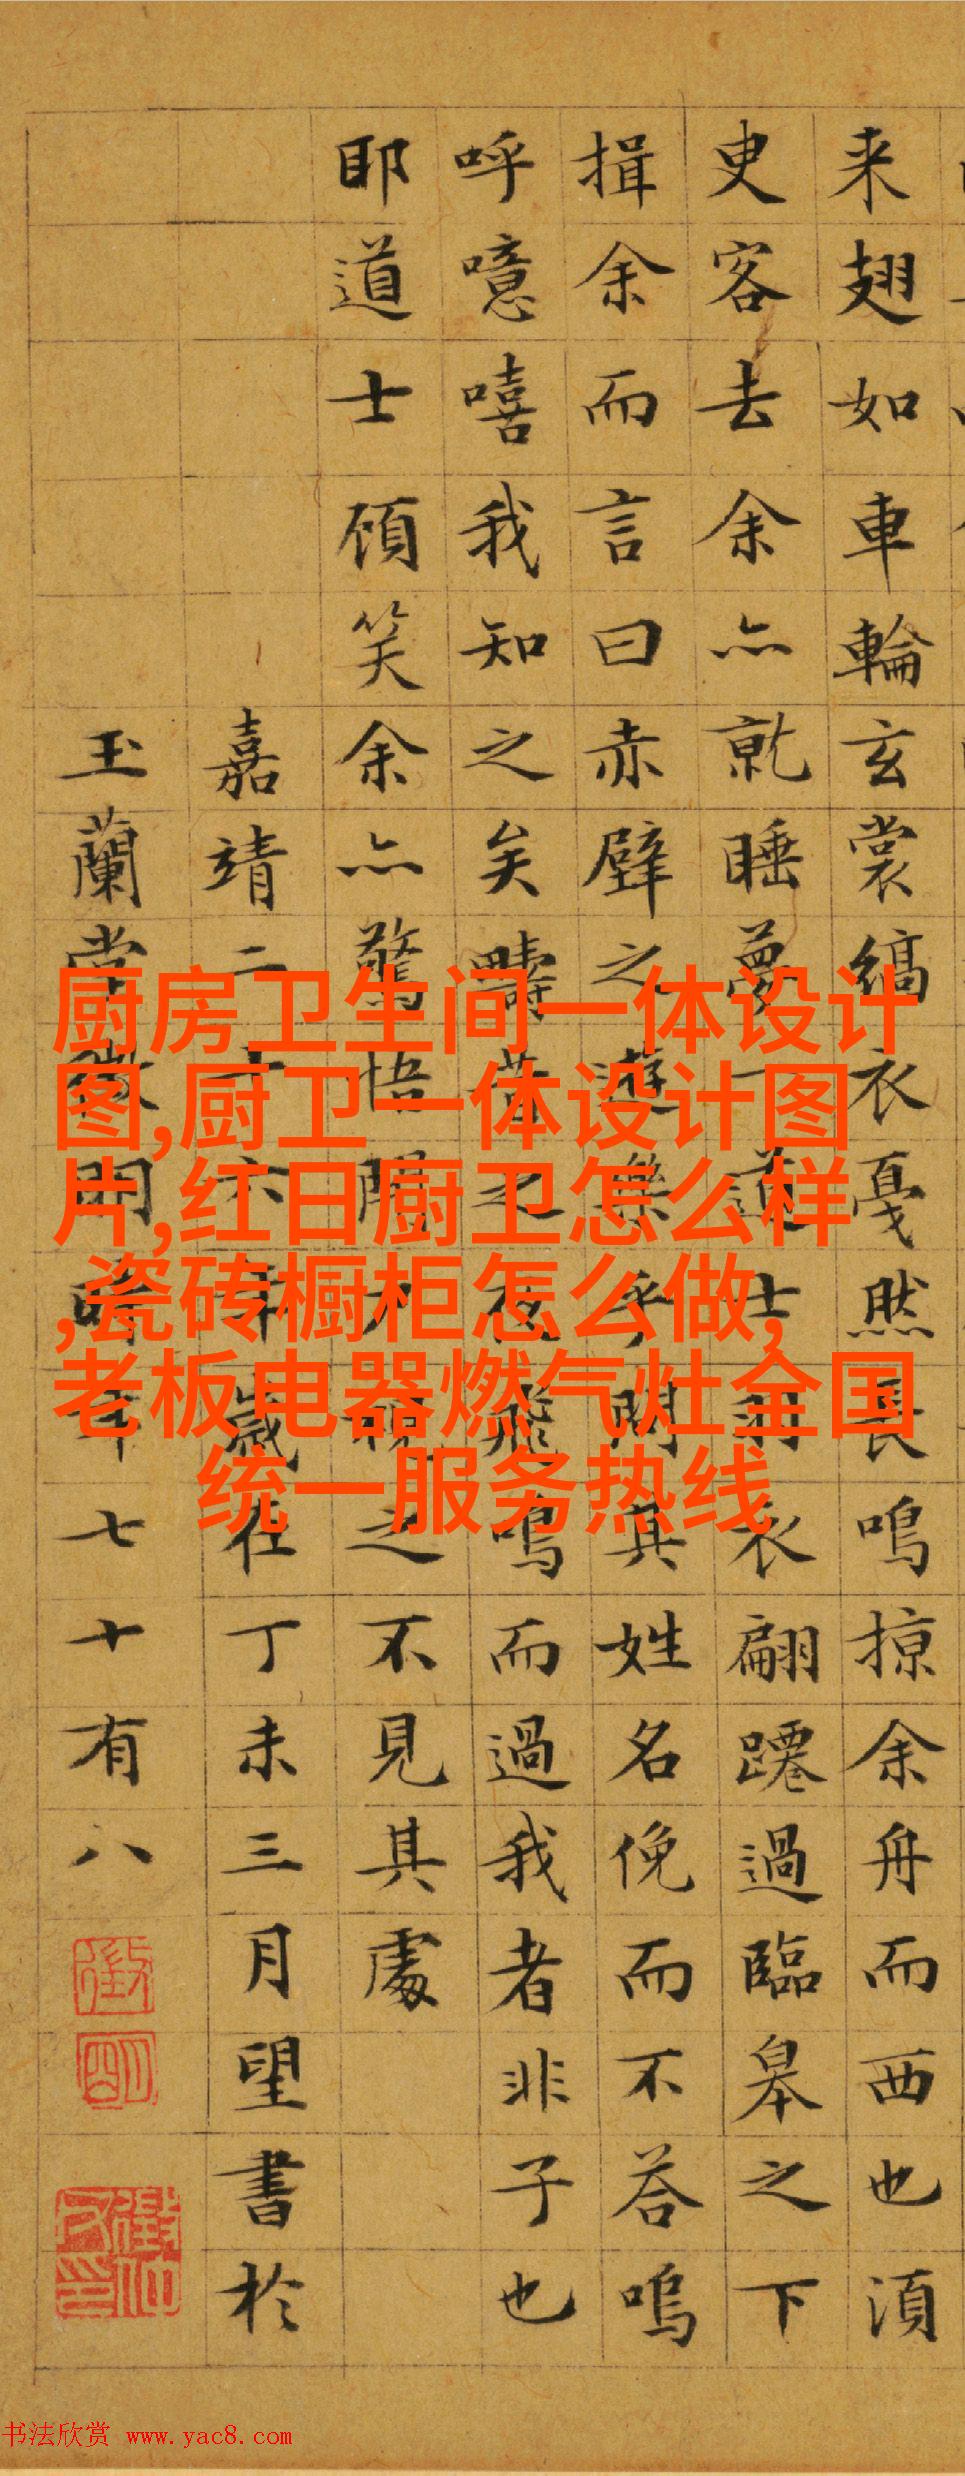 来翅如車輪玄裳縞衣戛然長鳴掠余舟而西也湏
臾客去余亦就睡夢一道士羽衣翩躚過臨皋之下
揖余而言曰赤壁之遊樂乎問其姓名俛而不荅嗚
呼噫嘻我知之矣疇昔之夜飛鳴而過我者非子也
耶道士顧笑余亦驚悟開户視之不見其處
嘉靖二十六年歲在丁未三月望書於
玉蘭堂徵明時年七十有八
徵
明
厨房卫生间一体设计
图,厨卫一体设计图
片,红日厨卫怎么样
,瓷砖橱柜怎么做,
老板电器燃气灶全国
统一服务热线
书法欣赏 www.yac8.com